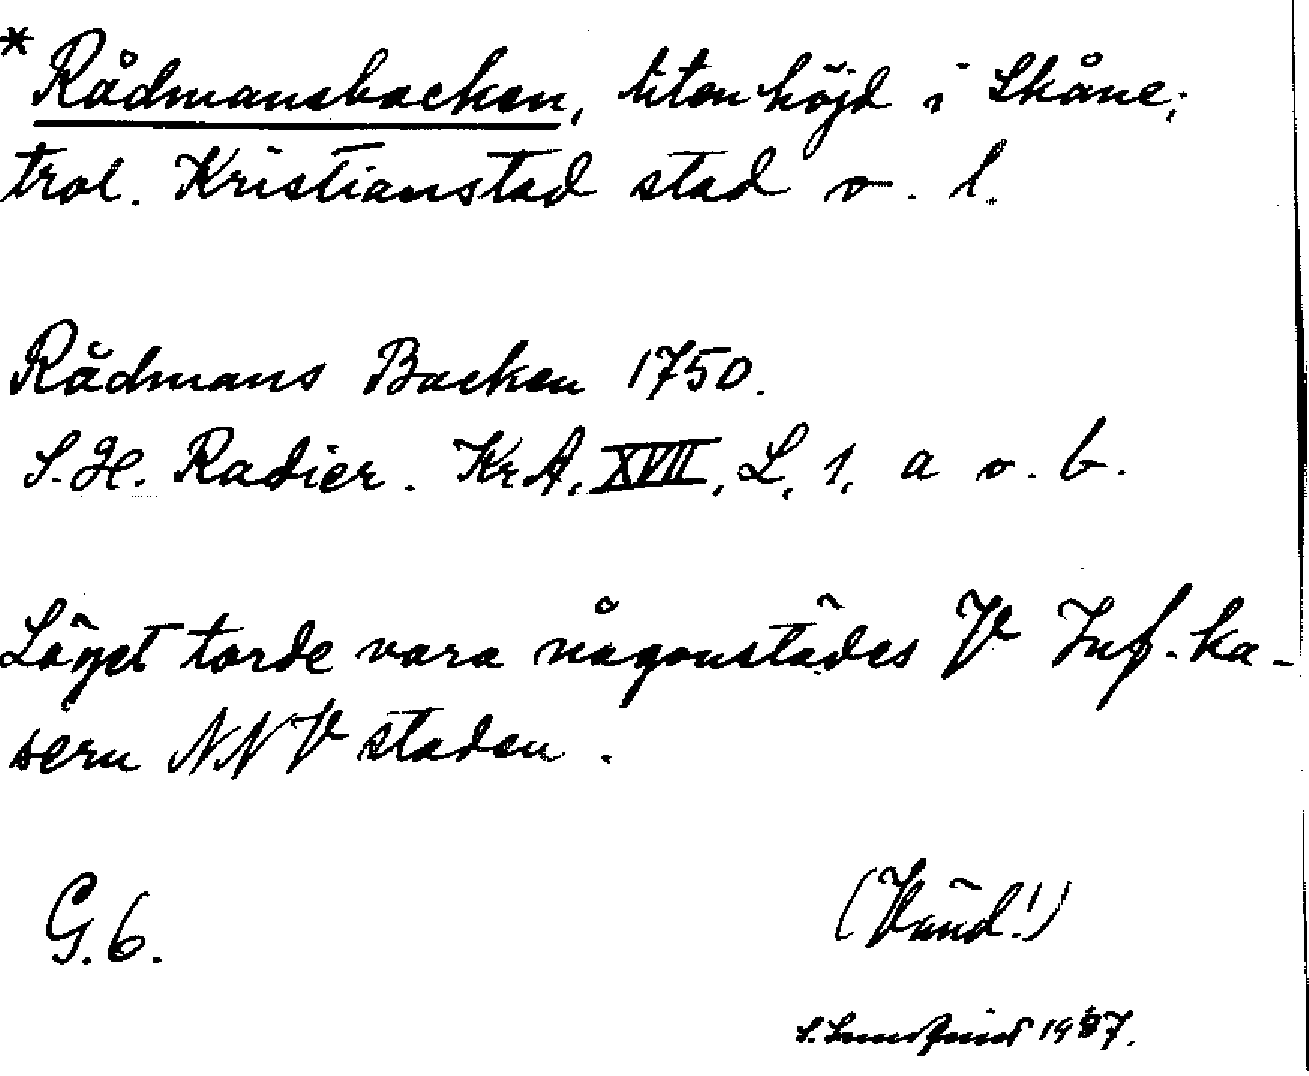 * Rådmansbacken, liten höjd i Skåne;
trol. Kristianstad stad o. l.
Rådmans Backen 1750.
S. H. Radier. KrA, XVII, L, 1, a o. b.
Läget torde vara någonstädes V Inf.-ka-
sern NNV staden.
G. 6.
(Vänd!)
S.